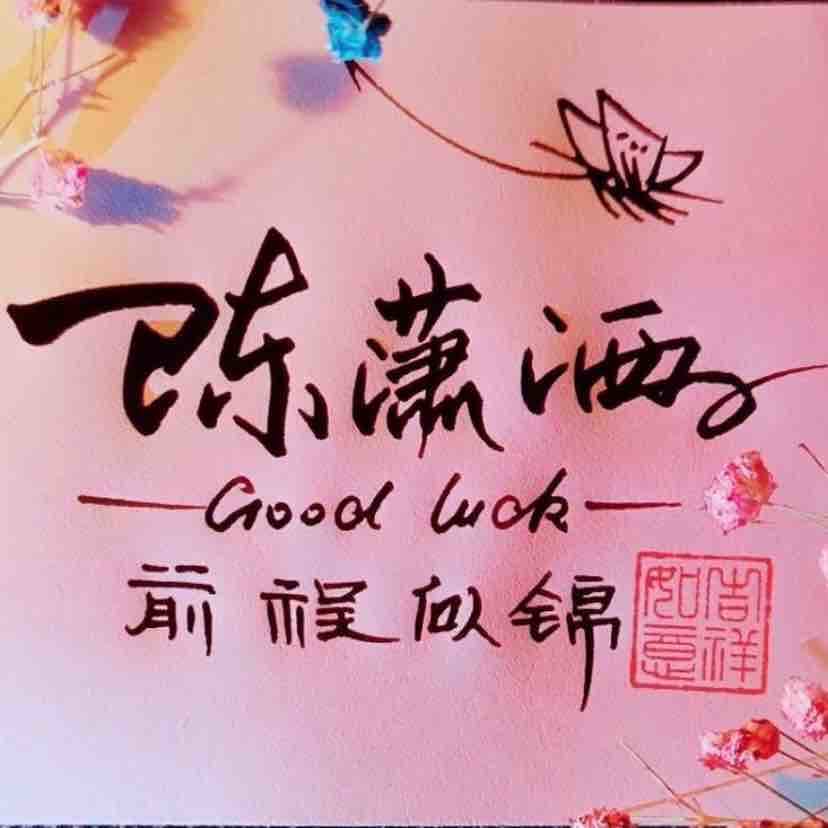 陈潇洒
Good luck
前程似锦
吉祥如意